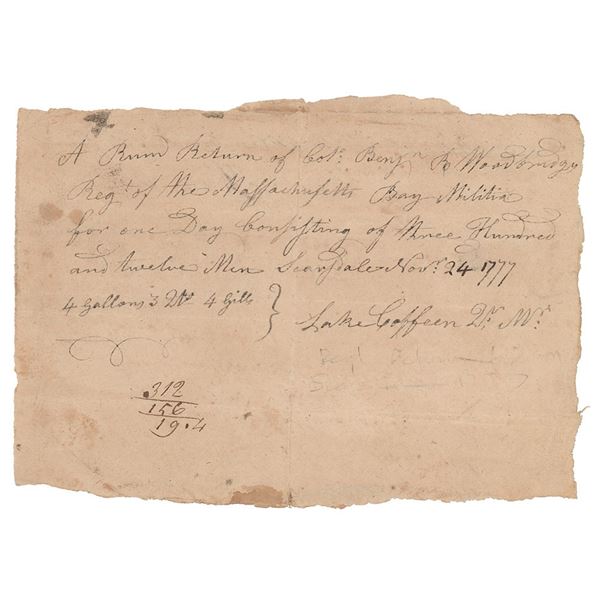 A Rum Return of Col.º Benj.ⁿ R Woodbridge
Reg.t of the Massachusetts Bay Militia
for one Day Consisting of three Hundred
and twelve Men Scarsdale Nov.r 24 1777
4 Gallons 3 Qts 4 Gills
Luke Coffeen Qr Mr
.312
156
19.4